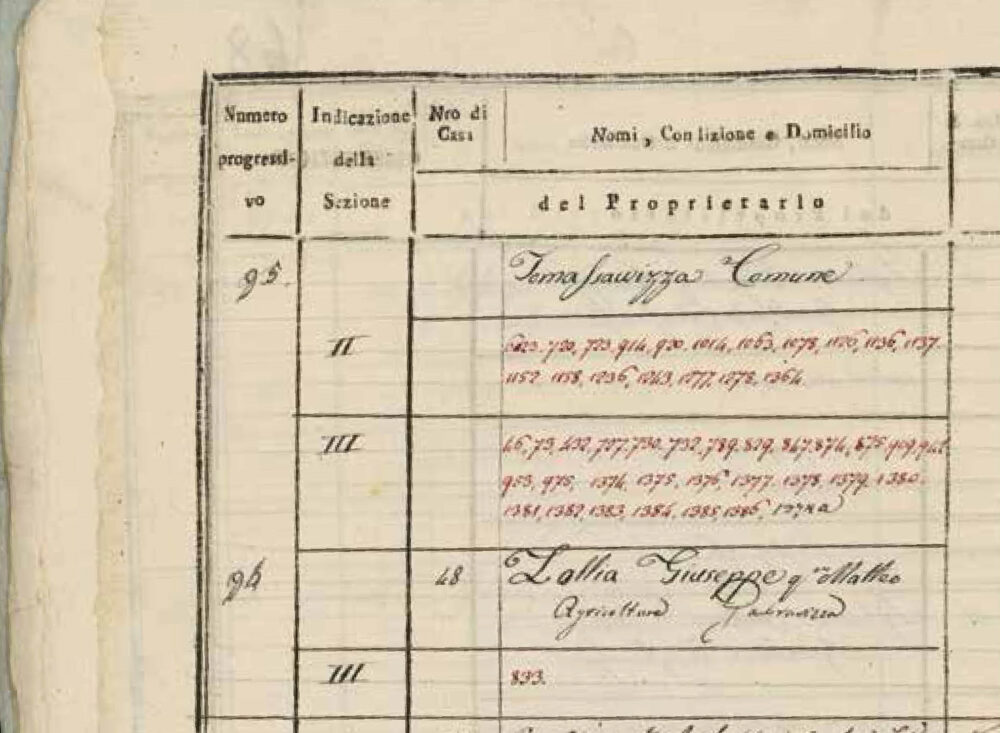 Numero progressi- vo
Indicazione della Sezione
Nro di Casa
Nomi, Condizione e Domicilio
del Proprietario
95. Comune
II
720, 723, 914, 920, 1014, 1063, 1078, 1136, 1137
1152 1158, 1236, 1243, 1277, 1278, 1364
III
46, 73, 432, 727, 730, 732, 789, 829, 847, 874, 875, 909,
953, 975, 1374, 1375, 1376, 1377, 1378, 1379, 1380.
1381, 1382, 1383, 1384, 1385, 1386,
48 Lollia Giuseppe qm Matteo
Agricoltore
III 833.